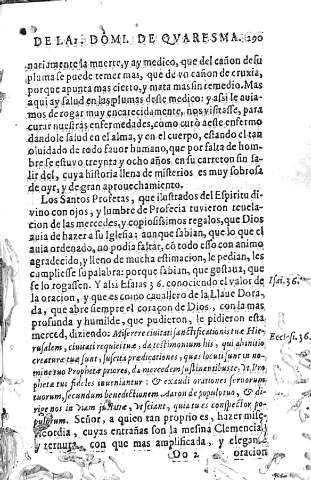 DE LA 1. DOMI. DE QVARESMA. 290
nariamente la muerte, y ay medico, que del cañon de su
pluma se puede temer mas, que de vn cañon de cruxia,
porque apunta mas cierto, y mata mas sin remedio. Mas
aqui ay salud en las plumas deste medico: y assi le auia-
mos de rogar muy encarecidamente, nos visitasse, para
curar nuestras enfermedades, como curò a este enfermo
dandole salud en el alma, y en el cuerpo, estando el tan
oluidado de todo fauor humano, que por falta de hom-
bre se estuvo treynta y ocho años en su carreton sin sa-
lir del, cuya historia llena de misterios es muy sobrosa
de oyr, y de gran aprouechamiento.
Los Santos Profetas, que ilustrados del Espiritu di-
vino con ojos, y lumbre de Profecia tuvieron reuela-
cion de las mercedes, y copiosissimos regalos, que Dios
auia de hazer a su Iglesia: aunque sabian, que lo que el
auia ordenado, no podia faltar, cō todo esso con animo
agradecido, y lleno de mucha estimacion, le pedian, les
cumpliesse su palabra: porque sabian, que gustaua, que
se lo rogassen. Y assi Esaias 36. conociendo el valor de
la oracion, y que es como cauallero de la Llaue Dora-
da, que abre siempre el coraçon de Dios, con la mas
profunda y humilde, que pudieron, le pidieron esta
merced, diziendo: Miserere ciuitati sanctificationis tuæ Hie-
rusalem, ciuitati requiei tuæ, da testimonium his, qui ab initio
creaturæ tuæ sunt, suscita prædicationes, quas locuti sunt in no-
mine tuo Prophetæ priores, da mercedem sustinentibus te, vt Pro-
phetæ tui fideles inueniantur: & exaudi orationes seruorum
tuorum, secundum benedictionem Aaron de populo tuo, & di-
rige nos in viam iustitiæ, vt sciant, quia tu es conspector po-
pulorum. Señor, a quien tan proprio es, hazer mise-
ricordia, cuyas entrañas son la mesma Clemencia,
y ternura, con que mas amplificada, y elegan-
Oo 2 oracion
Isai. 36.
Eccl-si. 36.